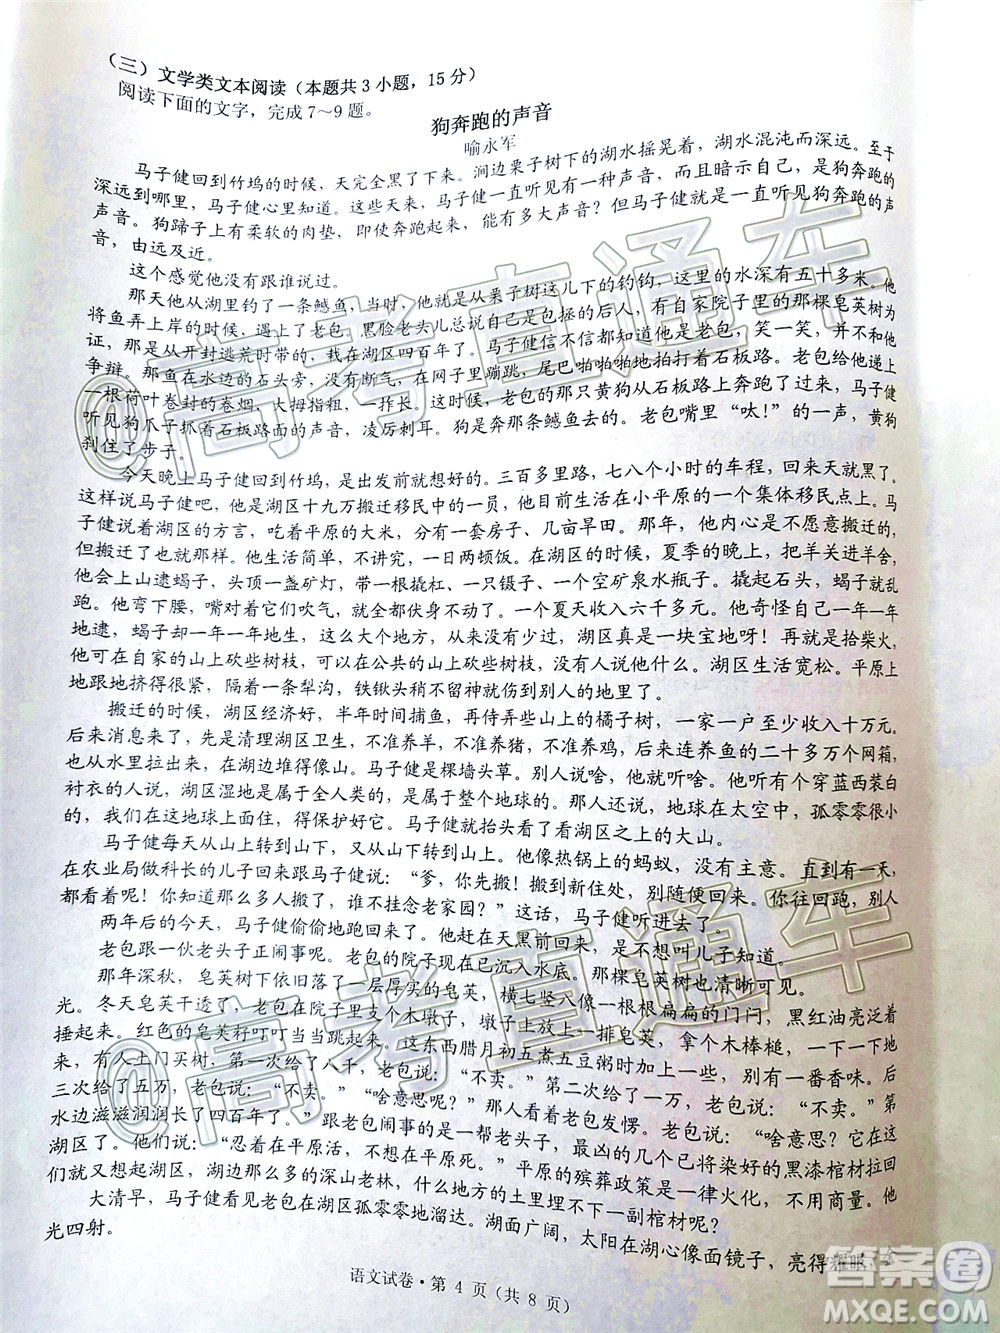 （三）文学类文本阅读（本题共3小题，15分）
阅读下面的文字，完成7～9题。
狗奔跑的声音
喻永军
马子健回到竹坞的时候，天完全黑了下来。涧边栗子树下的湖水摇晃着，湖水混沌而深远。至于
深远到哪里，马子健心里知道。这些天来，马子健一直听见有一种声音，而且暗示自己，是狗奔跑的
声音。狗蹄子上有柔软的肉垫，即使奔跑起来，能有多大声音？但马子健就是一直听见狗奔跑的声
音，由远及近。
这个感觉他没有跟谁说过。
那天他从湖里钓了一条鳡鱼，当时，他就是从栗子树这儿下的钓钩，这里的水深有五十多米。他
将鱼弄上岸的时候，遇上了老包。黑脸老头儿总说自己是包拯的后人，有自家院子里的那棵皂荚树为
证，那是从开封逃荒时带的，栽在湖区四百年了。马子健信不信都知道他是老包，笑一笑，并不和他
争辩。那鱼在水边的石头旁，没有断气，在网子里蹦跳，尾巴啪啪啪地拍打着石板路。老包给他递上
一根荷叶卷封的卷烟，大拇指粗，一拃长。这时候，一只黄狗从石板路上奔跑了过来，马子健
听见狗爪子抓着石板路面的声音，凌厉刺耳。狗是奔那条鳡鱼去的。老包嘴里“呔！”的一声，黄狗
刹住了步子。
今天晚上马子健回到竹坞，是出发前就想好的。三百多里路，七八个小时的车程，回来天就黑了。
这样说马子健吧，他是湖区十九万搬迁移民中的一员，他目前生活在小平原的一个集体移民点上。马
子健说着湖区的方言，吃着平原的大米，分有一套房子、几亩旱田。那年，他内心是不愿意搬迁的，
但搬迁了也就那样。他生活简单，不讲究，一日两顿饭。在湖区的时候，夏季的晚上，把羊关进羊舍，
他会上山逮蝎子，头顶一盏矿灯，带一根撬杠、一只镊子、一个空矿泉水瓶子。撬起石头，蝎子就乱
跑。他弯下腰，嘴对着它们吹气，就全都伏身不动了。一个夏天收入六千多元。他奇怪自己一年一年
地逮，蝎子却一年一年地生，这么大个地方，从来没有少过，湖区真是一块宝地呀！再就是拾柴火，
在自家的山上砍些树枝，可以在公共的山上砍些树枝，没有人给他说什么。湖区生活宽松。平原上
地跟地挤得很紧，隔着一条犁沟，铁锹头稍不留神就伸到别人的地里了。
搬迁的时候，湖区经济好，半年时间捕鱼，再侍弄些山上的橘子树，一家一户至少收入十万元。
后来消息来了，先是清理湖区卫生，不准养羊，不准养猪，不准养鸡，后来连养鱼的二十多万个网箱，
也从水里拉出来，在湖边堆得像山。马子健是棵墙头草。别人说啥，他就听啥。他知道有个穿蓝西装白
衬衣的人说，湖区湿地是属于全人类的，是属于整个地球的。那人还说，地球在太空中，孤零零很小
的，我们在这地球上面住，得保护好它。马子健就抬头看了看湖区之上的大山。
马子健每天从山上转到山下，又从山下转到山上。他像热锅上的蚂蚁，没有主意。直到有一天，
在农业局做科长的儿子回来跟马子健说：“爹，你先搬！搬到新住处，别随便回来。你往回跑，别人
都看着呢！你知道那么多人搬了，谁不挂念老家园？”这话，马子健听进去了。
两年后的今天，马子健偷偷地跑回来了。他在天黑前回来，是不想叫儿子知道。
老包跟一伙老头子正闹事呢。老包的院子现在已沉入水底。那棵皂荚树也清晰可见。
那年深秋，皂荚树下依旧落了一层厚实的皂荚，横七竖八，像一根根扁扁的门闩，黑红油亮泛着
光。冬天皂荚干透了，老包在院子里支个木墩子，墩子上放一排皂荚，拿个木棒槌，一下一下地
捶起来。红色的皂荚籽叮叮当当跳起来。这东西腊月初五煮五豆粥时加上一些，别有一番香味。后
来，有人上门买树，第一次给了五千，老包说：“不卖。”第二次给了一万，老包说：“不卖。”第
三次给了五万，老包说：“不卖。”“啥意思呢？”买树的看着老包发愣。老包说：“啥意思？它在这
水边滋滋润润长了四百年了。”跟老包闹事的是一帮老头子，最凶的几个已将染好的黑漆棺材拉回
湖区了。他们说：“忍着在平原活，不想在平原死。”平原的殡葬政策是一律火化，不用商量。他
们就又想起湖区，湖边那么多的深山老林，什么地方的土里埋不下一副棺材呢？
大清早，马子健看见老包在湖区孤零零地溜达。湖面广阔，太阳在湖心像面镜子，亮得耀眼，金
光四射。
语文试卷·第 4 页（共 8 页）
@高考直通车
@高考直通车
答案圈
MXQE.COM